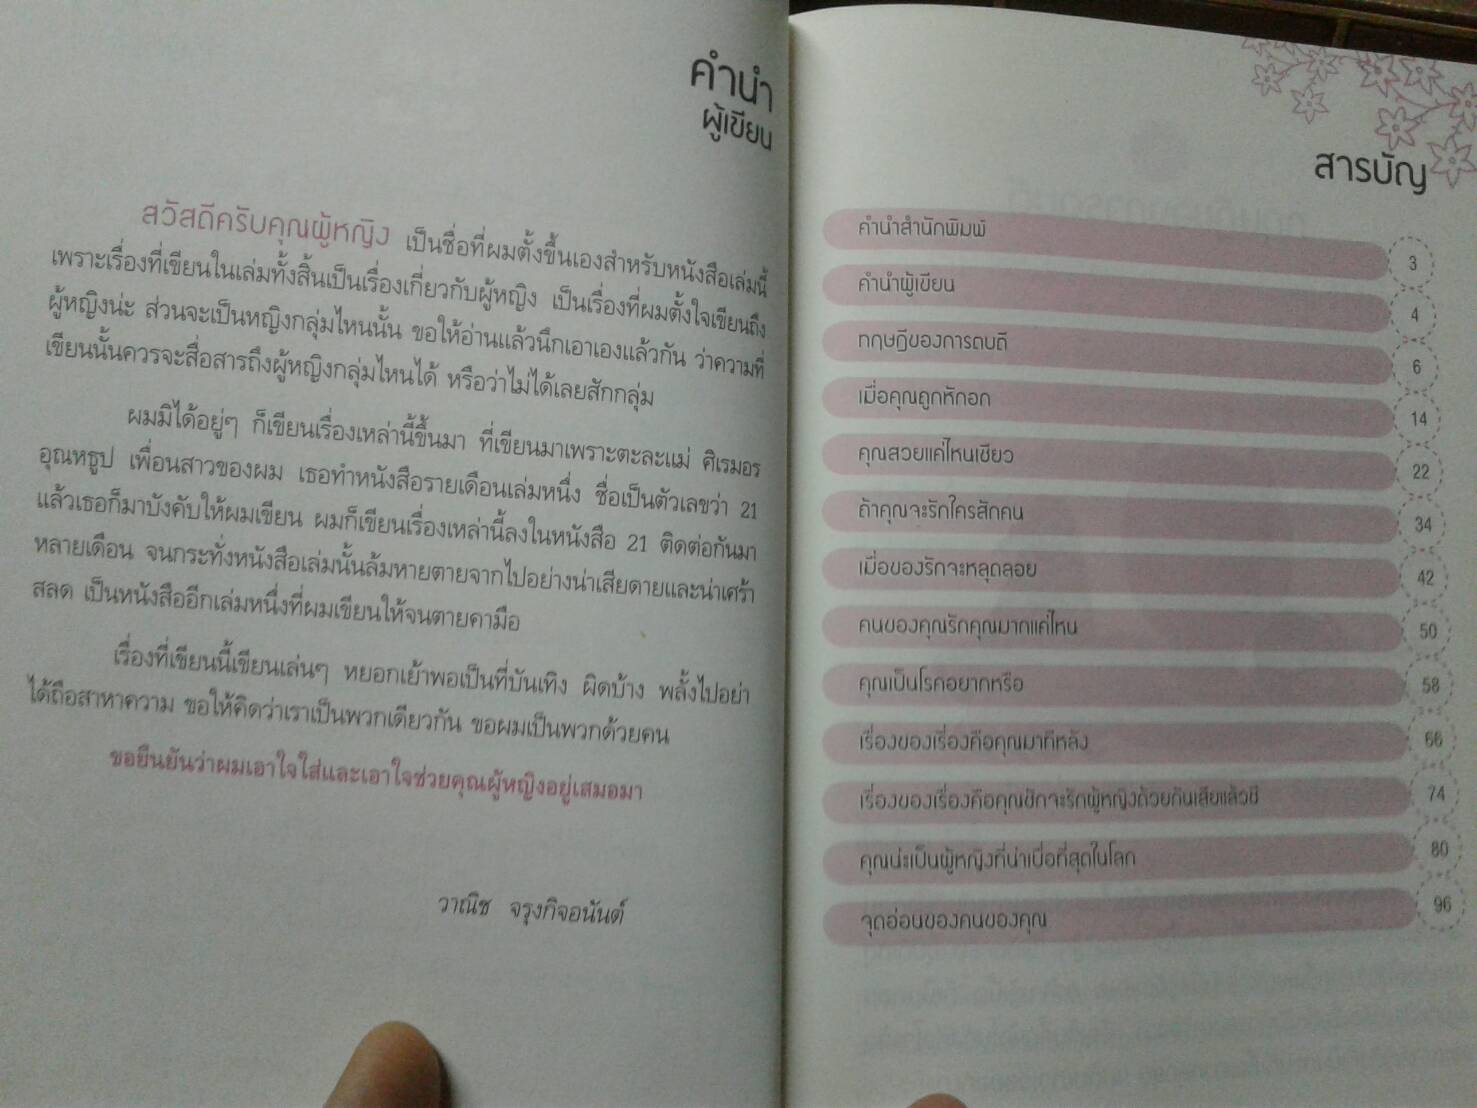 คำนำ
ผู้เขียน
สวัสดีครับคุณผู้หญิง เป็นชื่อที่ผมตั้งขึ้นเองสำหรับหนังสือเล่มนี้
เพราะเรื่องที่เขียนในเล่มทั้งสิ้นเป็นเรื่องเกี่ยวกับผู้หญิง เป็นเรื่องที่ผมตั้งใจเขียนถึง
ผู้หญิงน่ะ ส่วนจะเป็นหญิงกลุ่มไหนนั้น ขอให้อ่านแล้วนึกเอาเองแล้วกัน ว่าความที่
เขียนนั้นควรจะสื่อสารถึงผู้หญิงกลุ่มไหนได้ หรือว่าไม่ได้เลยสักกลุ่ม
ผมมิได้อยู่ๆ ก็เขียนเรื่องเหล่านี้ขึ้นมา ที่เขียนมาเพราะตะละแม่ ศิเรมอร
อุณหธูป เพื่อนสาวของผม เธอทำหนังสือรายเดือนเล่มหนึ่ง ชื่อเป็นตัวเลขว่า 21
แล้วเธอก็มาบังคับให้ผมเขียน ผมก็เขียนเรื่องเหล่านี้ลงในหนังสือ 21 ติดต่อกันมา
หลายเดือน จนกระทั่งหนังสือเล่มนั้นล้มหายตายจากไปอย่างน่าเสียดายและน่าเศร้า
สลด เป็นหนังสืออีกเล่มหนึ่งที่ผมเขียนให้จนตายคามือ
เรื่องที่เขียนนี้เขียนเล่นๆ หยอกเย้าพอเป็นที่บันเทิง ผิดบ้าง พลั้งไปอย่า
ได้ถือสาหาความ ขอให้คิดว่าเราเป็นพวกเดียวกัน ขอผมเป็นพวกด้วยคน
ขอยืนยันว่าผมเอาใจใส่และเอาใจช่วยคุณผู้หญิงอยู่เสมอมา
วาณิช จรุงกิจอนันต์
สารบัญ
คำนำสำนักพิมพ์ 3
คำนำผู้เขียน 4
ทฤษฎีของการตบตี 6
เมื่อคุณถูกหักอก 14
คุณสวยแค่ไหนเชียว 22
ถ้าคุณจะรักใครสักคน 34
เมื่อของรักจะหลุดลอย 42
คนของคุณรักคุณมากแค่ไหน 50
คุณเป็นโรคอยากหรือ 58
เรื่องของเรื่องคือคุณมาทีหลัง 66
เรื่องของเรื่องคือคุณชักจะรักผู้หญิงด้วยกันเสียแล้วซี 74
คุณน่ะเป็นผู้หญิงที่น่าเบื่อที่สุดในโลก 80
จุดอ่อนของคนของคุณ 96